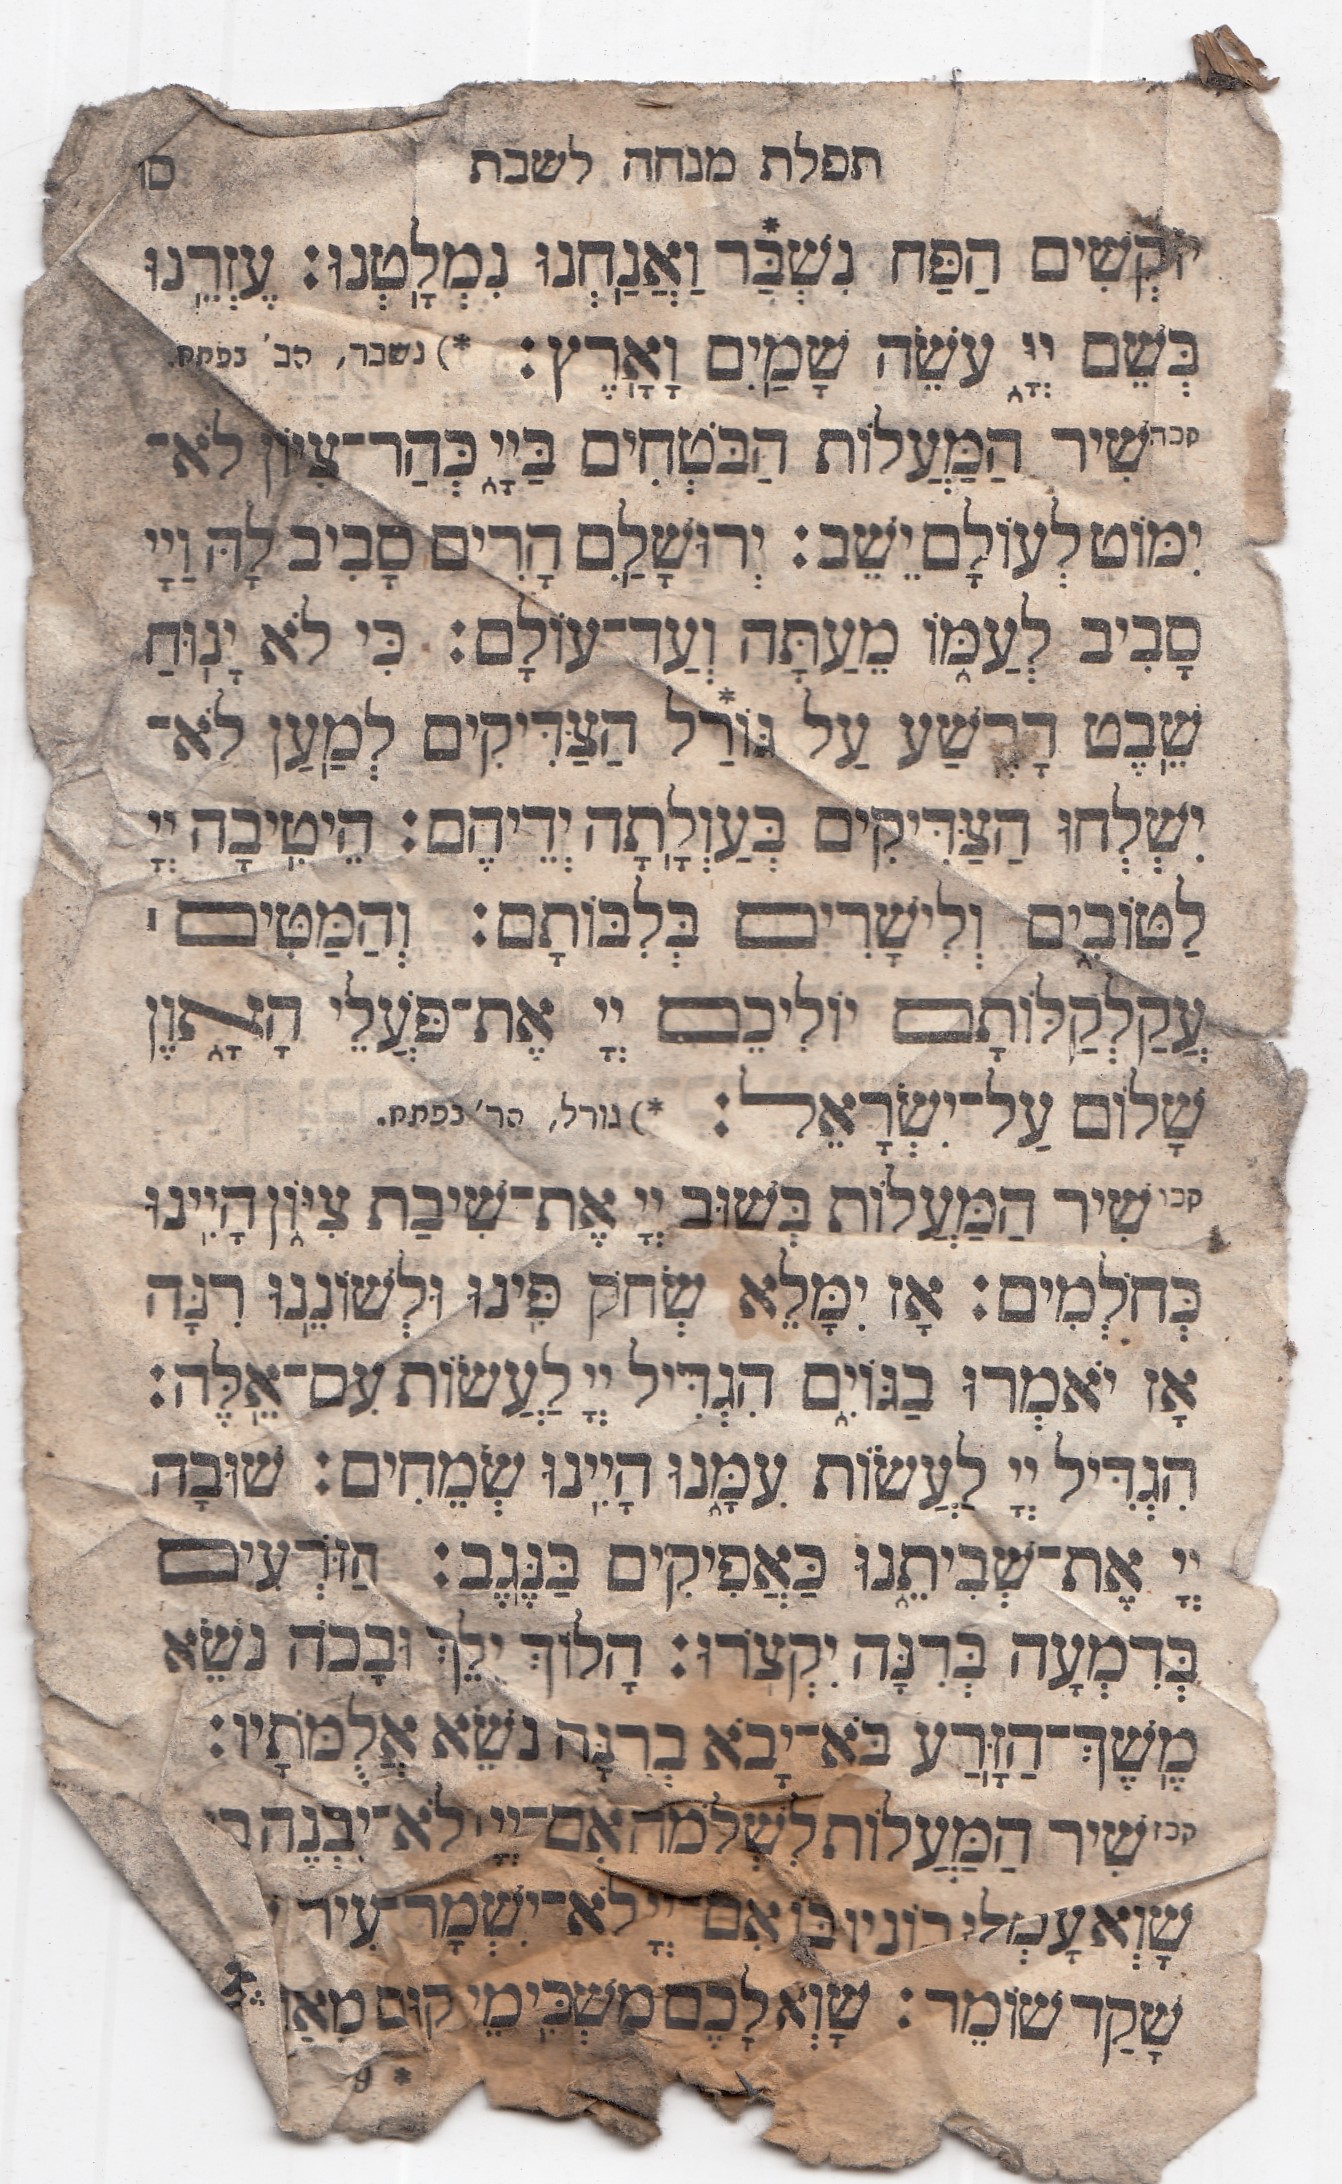 תפלת מנחה לשבת סו
יוֹקְשִׁים הַפַּח נִשְׁבַּ*ר וַאֲנַחְנוּ נִמְלָטְנוּ: עֶזְרֵנוּ
בְּשֵׁם יְיָ עֹשֵׂה שָׁמַיִם וָאָרֶץ: *) נשבר, הב' בפתח.
קכה שִׁיר הַמַּעֲלוֹת הַבֹּטְחִים בַּיְיָ כְּהַר־צִיּוֹן לֹא־
יִמּוֹט לְעוֹלָם יֵשֵׁב: יְרוּשָׁלַםִ הָרִים סָבִיב לָהּ וַיְיָ
סָבִיב לְעַמּוֹ מֵעַתָּה וְעַד־עוֹלָם: כִּי לֹא יָנוּחַ
שֵׁבֶט הָרֶשַׁע עַל גּוֹרַ*ל הַצַּדִּיקִים לְמַעַן לֹא־
יִשְׁלְחוּ הַצַּדִּיקִים בְּעַוְלָתָה יְדֵיהֶם: הֵיטִיבָה יְיָ
לַטּוֹבִים וְלִישָׁרִים בְּלִבּוֹתָם: וְהַמַּטִּים ׀
עֲקַלְקַלּוֹתָם יוֹלִיכֵם יְיָ אֶת־פֹּעֲלֵי הָאָוֶן
שָׁלוֹם עַל־יִשְׂרָאֵל: *) גורל, הר' בפתח.
קכו שִׁיר הַמַּעֲלוֹת בְּשׁוּב יְיָ אֶת־שִׁיבַת צִיּוֹן הָיִינוּ
כְּחֹלְמִים: אָז יִמָּלֵא שְׂחֹק פִּינוּ וּלְשׁוֹנֵנוּ רִנָּה
אָז יֹאמְרוּ בַגּוֹיִם הִגְדִּיל יְיָ לַעֲשׂוֹת עִם־אֵלֶּה:
הִגְדִּיל יְיָ לַעֲשׂוֹת עִמָּנוּ הָיִינוּ שְׂמֵחִים: שׁוּבָה
יְיָ אֶת־שְׁבִיתֵנוּ כַּאֲפִיקִים בַּנֶּגֶב: הַזֹּרְעִים
בְּדִמְעָה בְּרִנָּה יִקְצֹרוּ: הָלוֹךְ יֵלֵךְ וּבָכֹה נֹשֵׂא
מֶשֶׁךְ־הַזָּרַע בֹּא־יָבֹא בְרִנָּה נֹשֵׂא אֲלֻמֹּתָיו:
קכז שִׁיר הַמַּעֲלוֹת לִשְׁלֹמֹה אִם־יְיָ לֹא־יִבְנֶה
שָׁוְא עָמְלוּ בוֹנָיו בּוֹ אִם־יְיָ לֹא־יִשְׁמָר־עִיר
שָׁקַד שׁוֹמֵר: שָׁוְא לָכֶם מַשְׁכִּימֵי קוּם
* 9